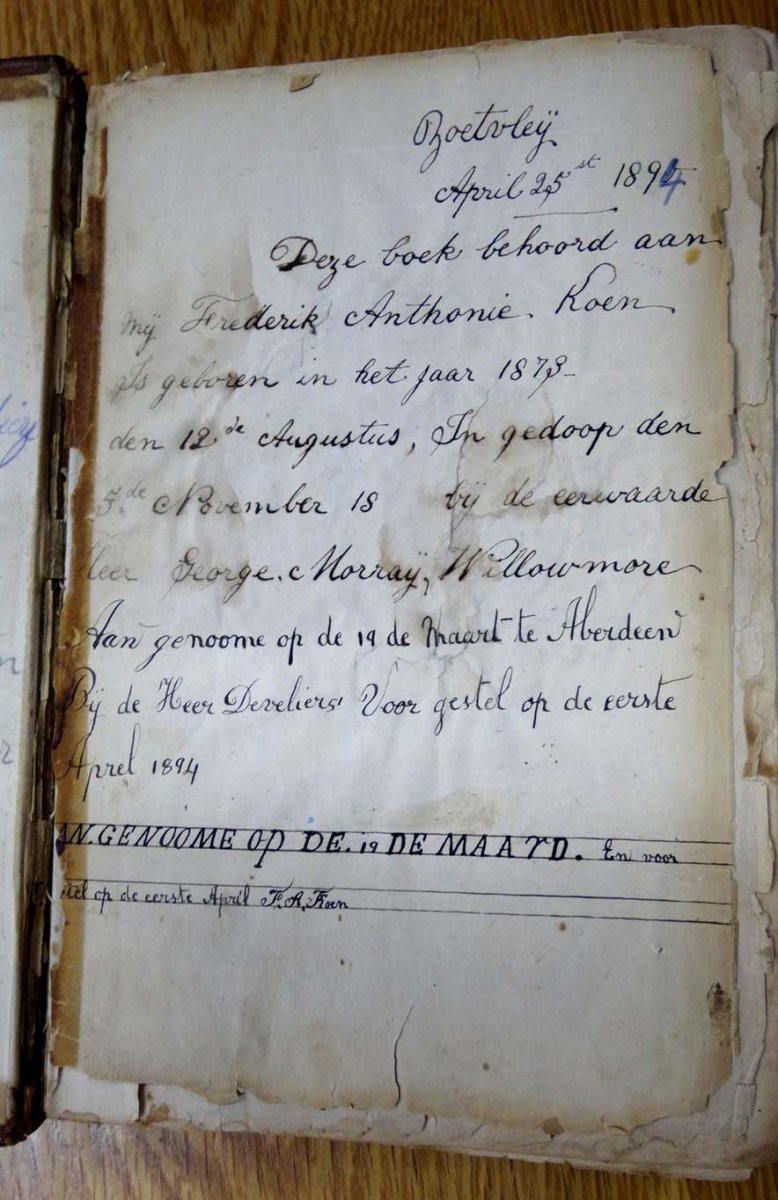 Zoetvleÿ
April 25st 1894
Deze boek behoord aan
mÿ Frederik Anthonie. Koen
Is geboren in het jaar 1873
den 12de Augustus, In gedoop den
5.de November 18 bÿ de eerwaarde
Heer George. Morraÿ, Willowmore
Aan genoome op de 19 de Maart te Aberdeen
Bÿ de Heer Develiers Voor gestel op de eerste
Aprel 1894
AN. GENOOME OP DE. 19 DE MAARD. En voor
stel op de eerste April F. A. Koen